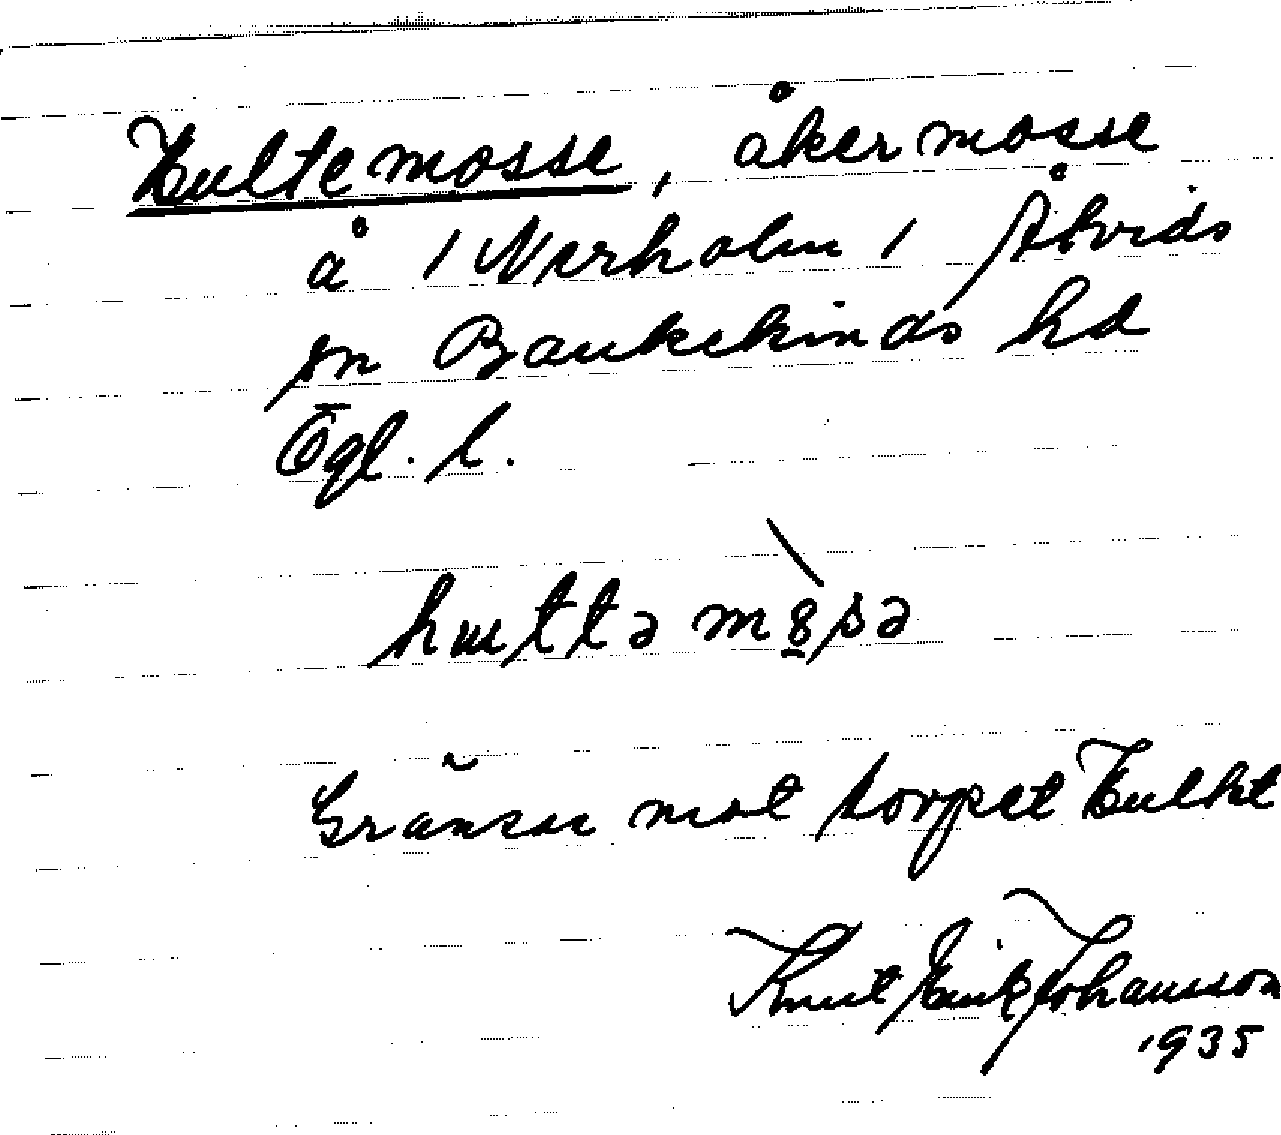 Hultemosse, åkermosse
å / Narholm / Åtvids
sn Bankekinds hd
Ögl. l.
Gränsar mot torpet Hultet
Knut Erik Johansson
1935